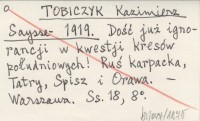 TOBICZYK Kazimierz
1919. Dość już igno-
rancji w kwestji kresów
południowych! Ruś karpacka,
Tatry, Spisz i Orawa. –
Warszawa. Ss. 18, 8°.